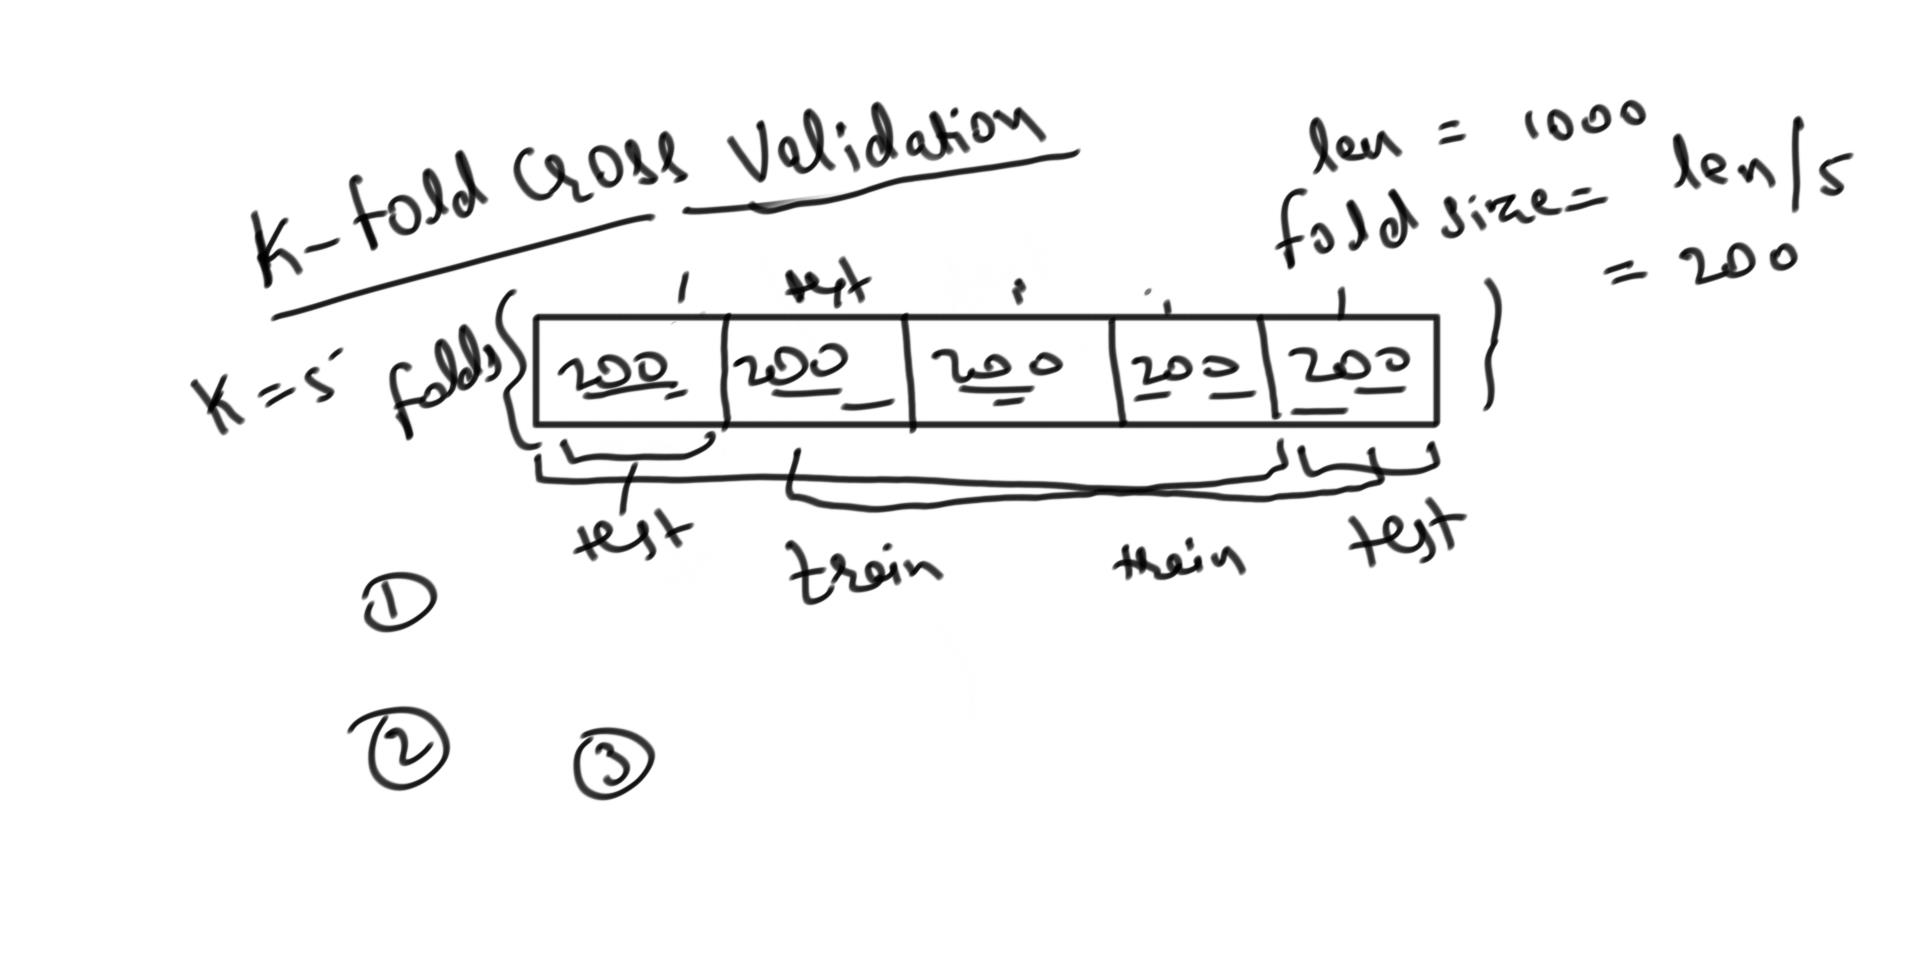 K-fold Cross Validation
len = 1000
fold size = len/5
= 200
test
K=5 folds
200 200 200 200 200
test train train test
1
2 3